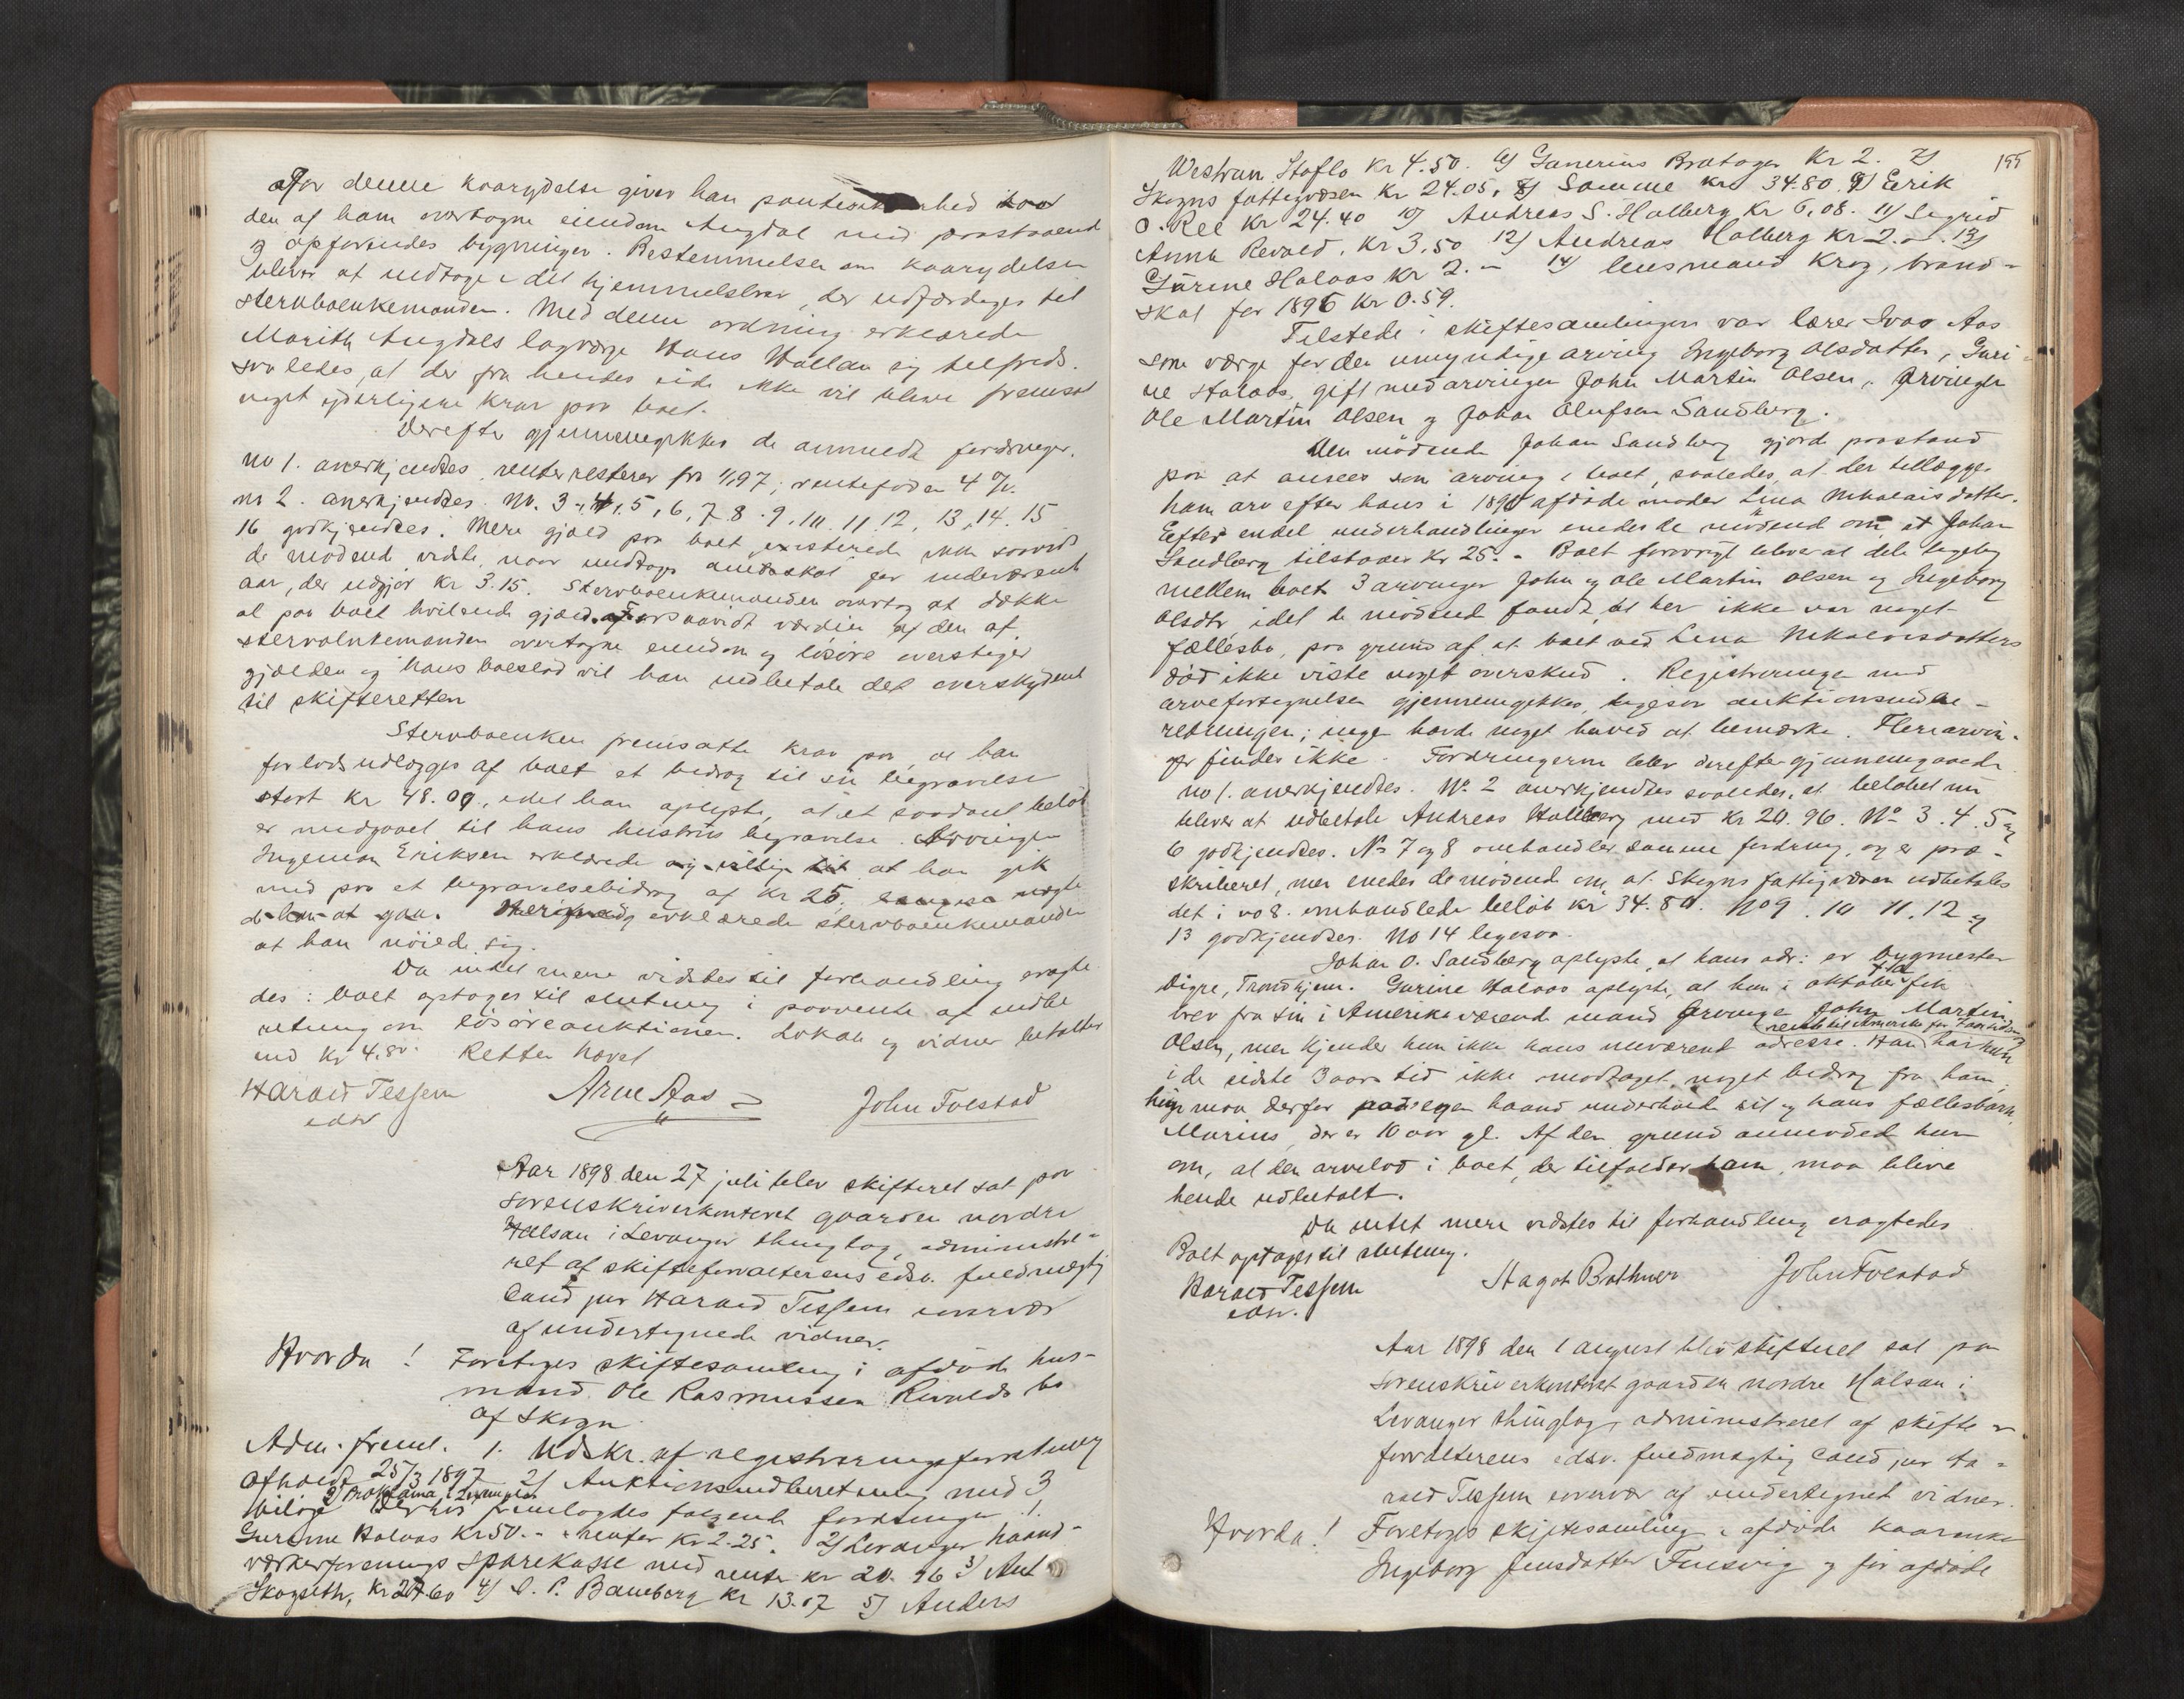 For denne kaarydelse giver han pantesikkerhed i
den af ham overtagne eiendom Augdal med paastaaende
og opførendes bygninger. Bestemmelsen om kaarydelsen
bliver at indtage i det hjemmelsbrev, der udfærdiges til
stervboenkemanden. Med denne ordning erklærede
Marith Augdals lagværge Hans Hallan sig tilfreds.
saaledes, at der fra hendes side ikke vil blive fremsat
noget yderligere krav paa boet.
Derefter gjennemgikkes de anmeldte fordringer.
no 1. anerkjendtes, renter resterer fra 1/1 97; rentefoden 4 %.
no 2. anerkjendtes. No. 3, 4, 5, 6, 7, 8. 9. 10. 11. 12, 13, 14. 15
16 godkjendtes. Mere gjæld paa boet existerede ikke saavidt
de mødende vidste, naar undtages amtsskat for indeværende
aar, der udgjør kr 3.15. Stervboenkemanden overtog at dække
al paa boet hvilende gjæld. Forsaavidt værdien af den af
stervboenkemanden overtagne eiendom og løsøre overstiger
gjælden og hans boeslod vil han indbetale det overskydende
til skifteretten
Stervboenkem fremsatte krav paa, at han
forlods udlægges af boet et bidrag til sin begravelse
stort kr 48.00, idet han oplyste, at et saadant beløb
er medgaaet til hans hustrus begravelse. Arvingen
Ingeman Eriksen erklærede at han gik
med paa et begravelsebidrag af kr 25,
erklærede stervboenkemanden
at han nøiede sig.
Da intet mere vidstes til forhandling eragte-
des: boet optages til slutning i paavente af indbe
retning om løsøreauktionen. Lokale og vidner betaltes
med kr 4.80. Retten hævet
Harald Tessem Arne Aas John Tolstad
edsv
Aar 1898 den 27 juli blev skifteret sat paa
sorenskriverkontoret gaarden nordre
Halsan i Levanger thinglag, administre-
ret af skifteforvalterens edsv. fuldmægtig
Cand jur Harald Tessem i overvær
af undertegnede vidner.
Hvorda! Foretoges skiftesamling i afdøde hus-
mand Ole Rasmussen Revalds bo
af Skogn
Adm. freml. 1. Udskr. af registreringsforretning
afholdt 25/3 1897 2) Auktionsindberetning med 3
bilag 3) Proklama i 2 exemplar Derhos fremlagdes følgende fordringer 1.
Gurine Halaas Kr 50.- + renter kr 2.25. 2) Levanger haand-
værkerforenings sparekasse med renter kr 20.96 3) Ant
Skogseth, kr 27.60 4) O. P. Bamberg kr 13.07 5) Anders
155
Westrum, Stoflo kr 4.50. 6) Gunerius Bratager kr 2. 7)
Skogns fattigvæsen kr 24.05, 8) Samme kr 34.80. 9) Eerik
O. Ree kr 24.40 10) Andreas S. Halberg kr 6,08. 11) Sigrid
Anna Revald, kr 3.50 12) Andreas Halberg kr 2.-. 13)
Gurine Halaas kr 2.- 14) lensmand Krog, brand-
skat for 1896 kr 0.59.
Tilstede i skiftesamlingen var lærer Ivar Aas
som værge for den umyndige arving Ingeborg Olsdatter, Guri-
ne Halaas, gift med arvingen John Martin Olsen, Arvingen
Ole Martin Olsen og Johan Olufsen Sandberg.
Den mødende Johan Sandberg gjorde paastand
paa at ansees som arving i boet, saaledes at der tillægges
ham arv efter hans i 1890 afdøde moder Lina Nikolaisdatter.
Efter endel underhandlinger enedes de mødende om, at Johan
Sandberg tilstaaes kr 25.- Boet forøvrigt bliver at dele ligelig
mellem boets 3 arvinger John og Ole Martin Olsen og Ingeborg
Olsdtr, idet de mødende fandt, at her ikke var noget
fællesbo, paa grund af, at boet ved Lina Nikolaisdatters
død ikke viste noget overskud. Registreringen med
arvefortegnelsen gjennemgikkes, ligesaa auktionsindbe-
retningen; ingen havde noget herved at bemærke. Flere arvin-
ger findes ikke. Fordringerne blev derefter gjennemgaaede
no 1. anerkjendtes. No 2 anerkjendtes saaledes, at beløbet nu
bliver at udbetale Andreas Halberg med kr 20.96. No 3. 4. 5 og
6 godkjendtes. No 7 og 8 omhandler samme fordring, og er præ-
skriberet, men enedes de mødende om, at Skogns fattigvæsen udbetales
det i no 8. omhandlede beløb kr 34.80. No 9. 10 11. 12 og
13 godkjendtes. No 14 ligesaa.
Johan O. Sandberg oplyste, at hans adr: er bygmester
Digre, Trondhjem. Gurine Halaas oplyste, at hun i oktober f.a. fik
brev fra sin i Amerika værende mand Arvingen John Martin
reiste til Amerika for 7 aar siden
Olsen, men kjender hun ikke hans nuværende adresse. Han har hun
i de sidste 3 aars tid ikke modtaget noget bidrag fra ham,
hun maa derfor paa egen haand underholde sit og hans fællesbarn,
Marius, der er 10 aar gl. Af den grund anmodede hun
om, at den arvelod i boet, der tilfalder ham, maa blive
hende udbetalt.
Da intet mere vidstes til forhandling eragtedes
Boet optages til slutning.
Harald Tessem Hagot Bothner John Tolstad
edsv.
Aar 1898 den 1 august blev skifteret sat paa
sorenskriverkontoret gaarden nordre Halsan i
Levanger thinglag, administreret af skifte
forvalterens edsv. fuldmægtig cand jur Ha-
rald Tessem i overvær af undertegnede vidner.
Hvorda! Foretoges skiftesamling i afdøde kaarenke
Ingeborg Jensdatter Finsvig og før afdøde